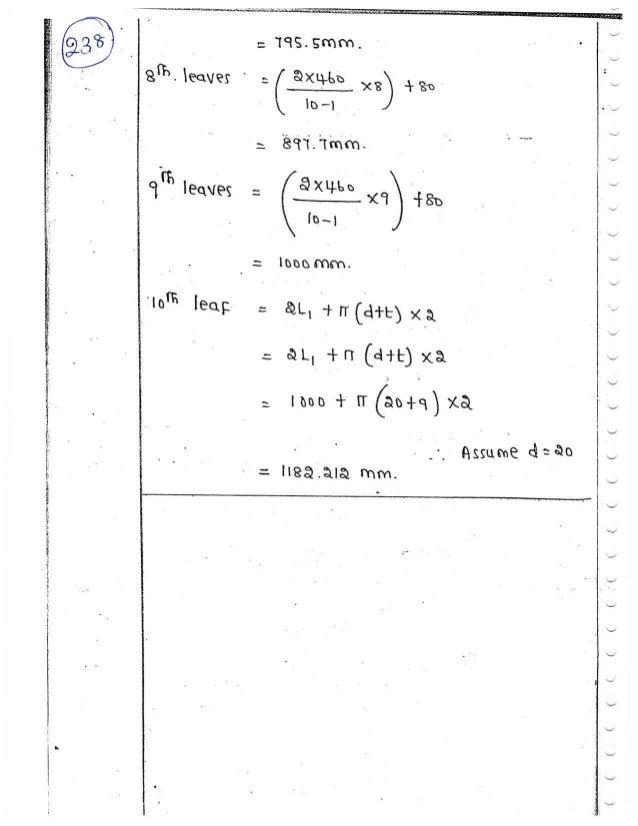 238
= 795.5mm.
8th. leaves = (2×460/10-1 ×8) +80
= 897.7mm.
9th leaves = (2×460/10-1 ×9) +80
= 1000mm.
10th leaf = 2L₁ + π(d+t) ×2
= 2L₁ + π (d+t) ×2
= 1000 + π (20+9) ×2
∴ Assume d=20
= 1182.212 mm.